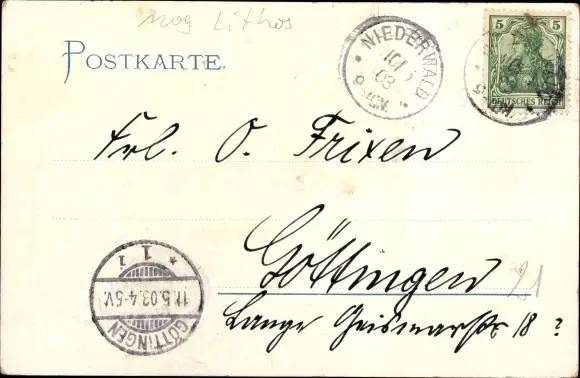 Mog Lithos
POSTKARTE.
NIEDERWALD
10/5
03
5
DEUTSCHES REICH
Frl. O. Frixen
Göttingen
21
Lange Geismarstr 18 ?
* 1 i
11.5.03.4-5V.
GÖTTINGEN